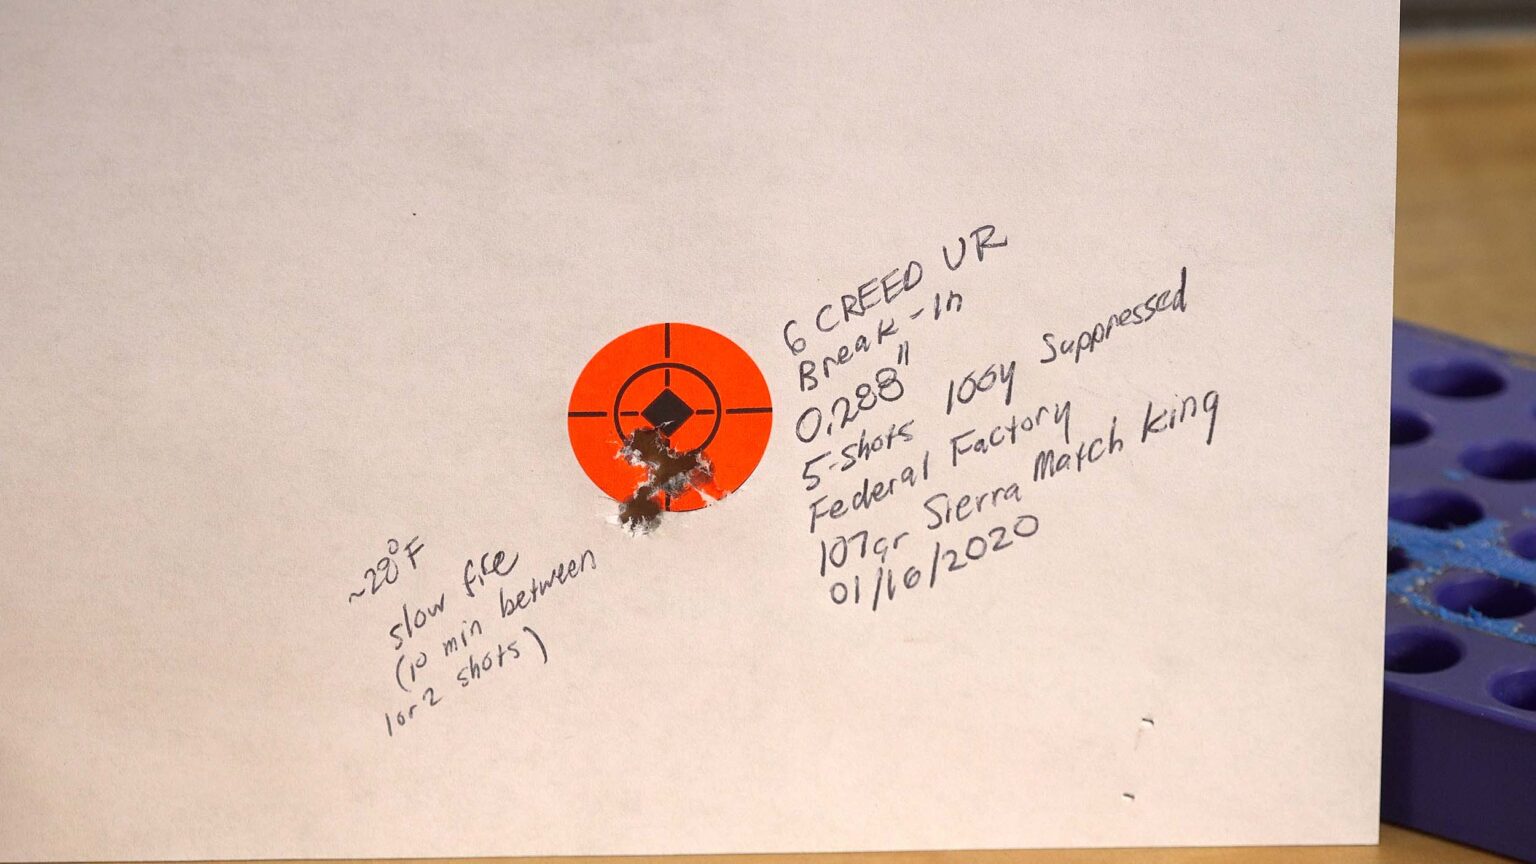 6 CREED UR
Break-In
0.288"
5-shots 100y Suppressed
Federal Factory
107gr Sierra Match King
01/16/2020
~28°F
slow fire
(10 min between
1 or 2 shots)